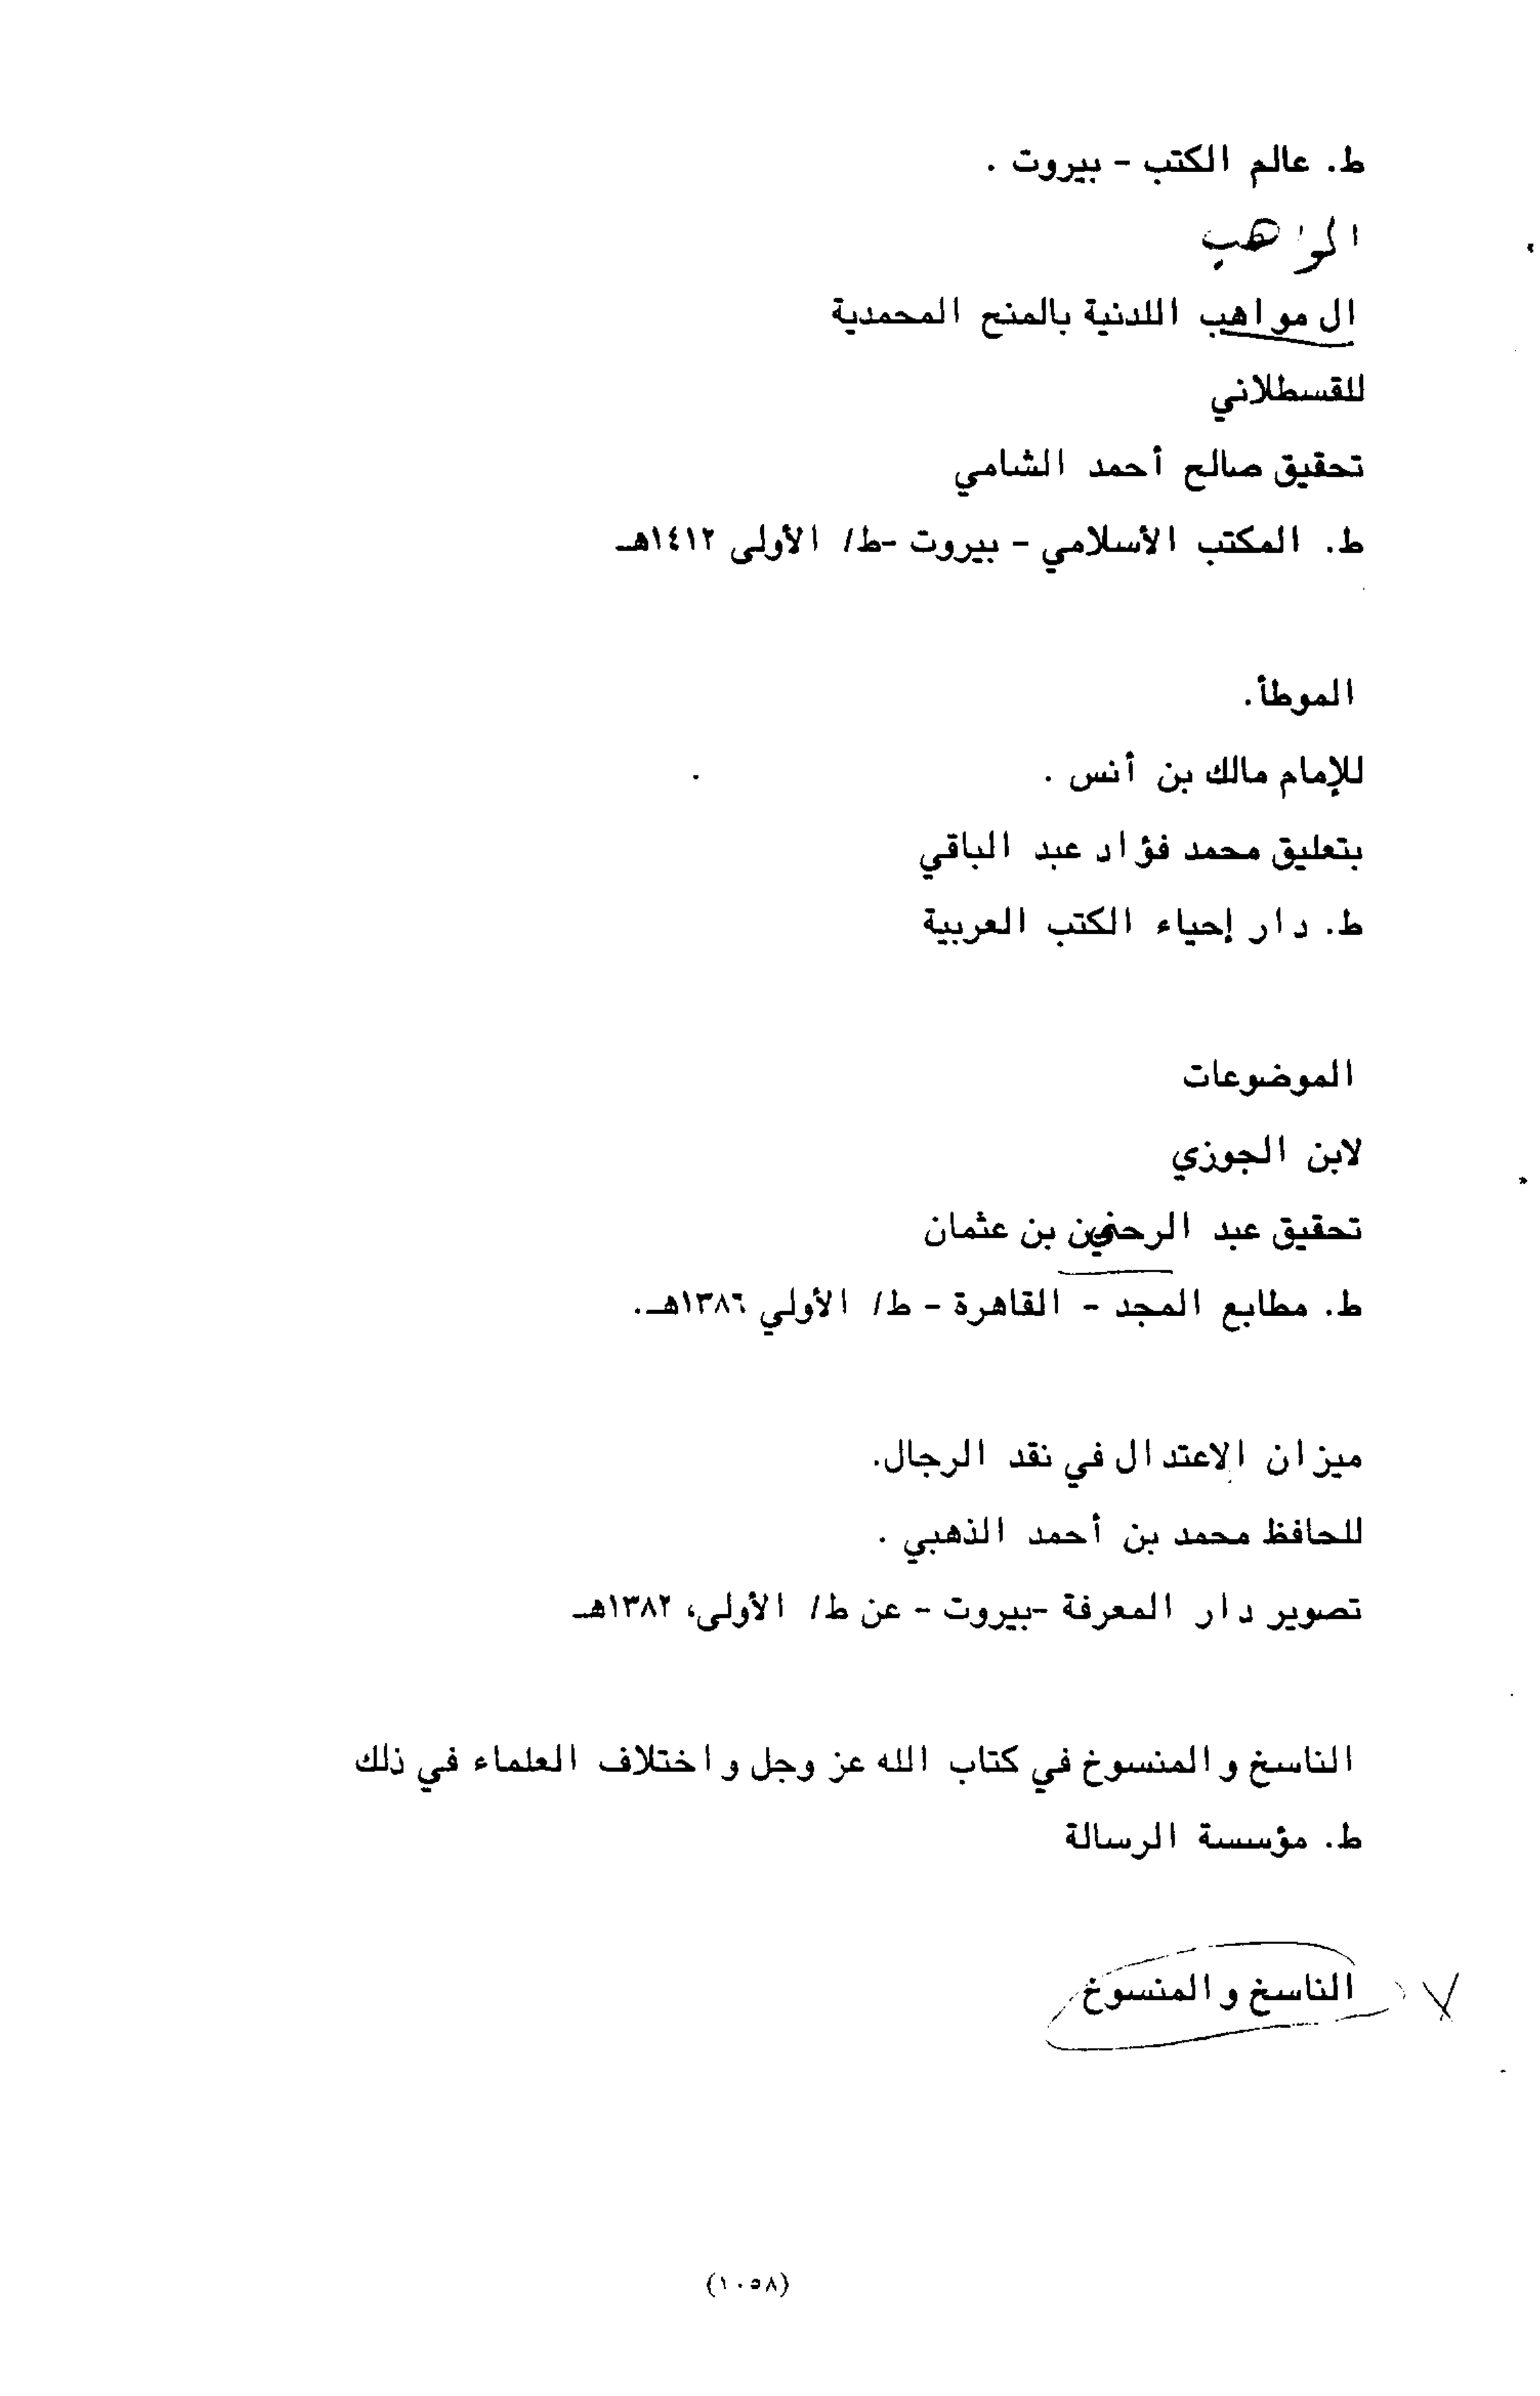 ط. عالم الكتب - بيروت .
المواهب
ال مواهب اللدنية بالمنح المحمدية
للقسطلاني
تحقيق صالح أحمد الشامي
ط. المكتب الأسلامي - بيروت -ط/ الأولى ١٤١٢هـ
الموطأ.
للإمام مالك بن أنس .
بتعليق محمد فؤاد عبد الباقي
ط. دار إحياء الكتب العربية
الموضوعات
لابن الجوزي
تحقيق عبد الرحمن بن عثمان
ط. مطابع المجد - القاهرة - ط/ الأولي ١٣٨٦هـ.
ميزان الاعتدال في نقد الرجال.
للحافظ محمد بن أحمد الذهبي .
تصوير دار المعرفة -بيروت - عن ط/ الأولى، ١٣٨٢هـ
الناسخ والمنسوخ في كتاب الله عز وجل واختلاف العلماء في ذلك
ط. مؤسسة الرسالة
الناسخ والمنسوخ
(١٠٥٨)